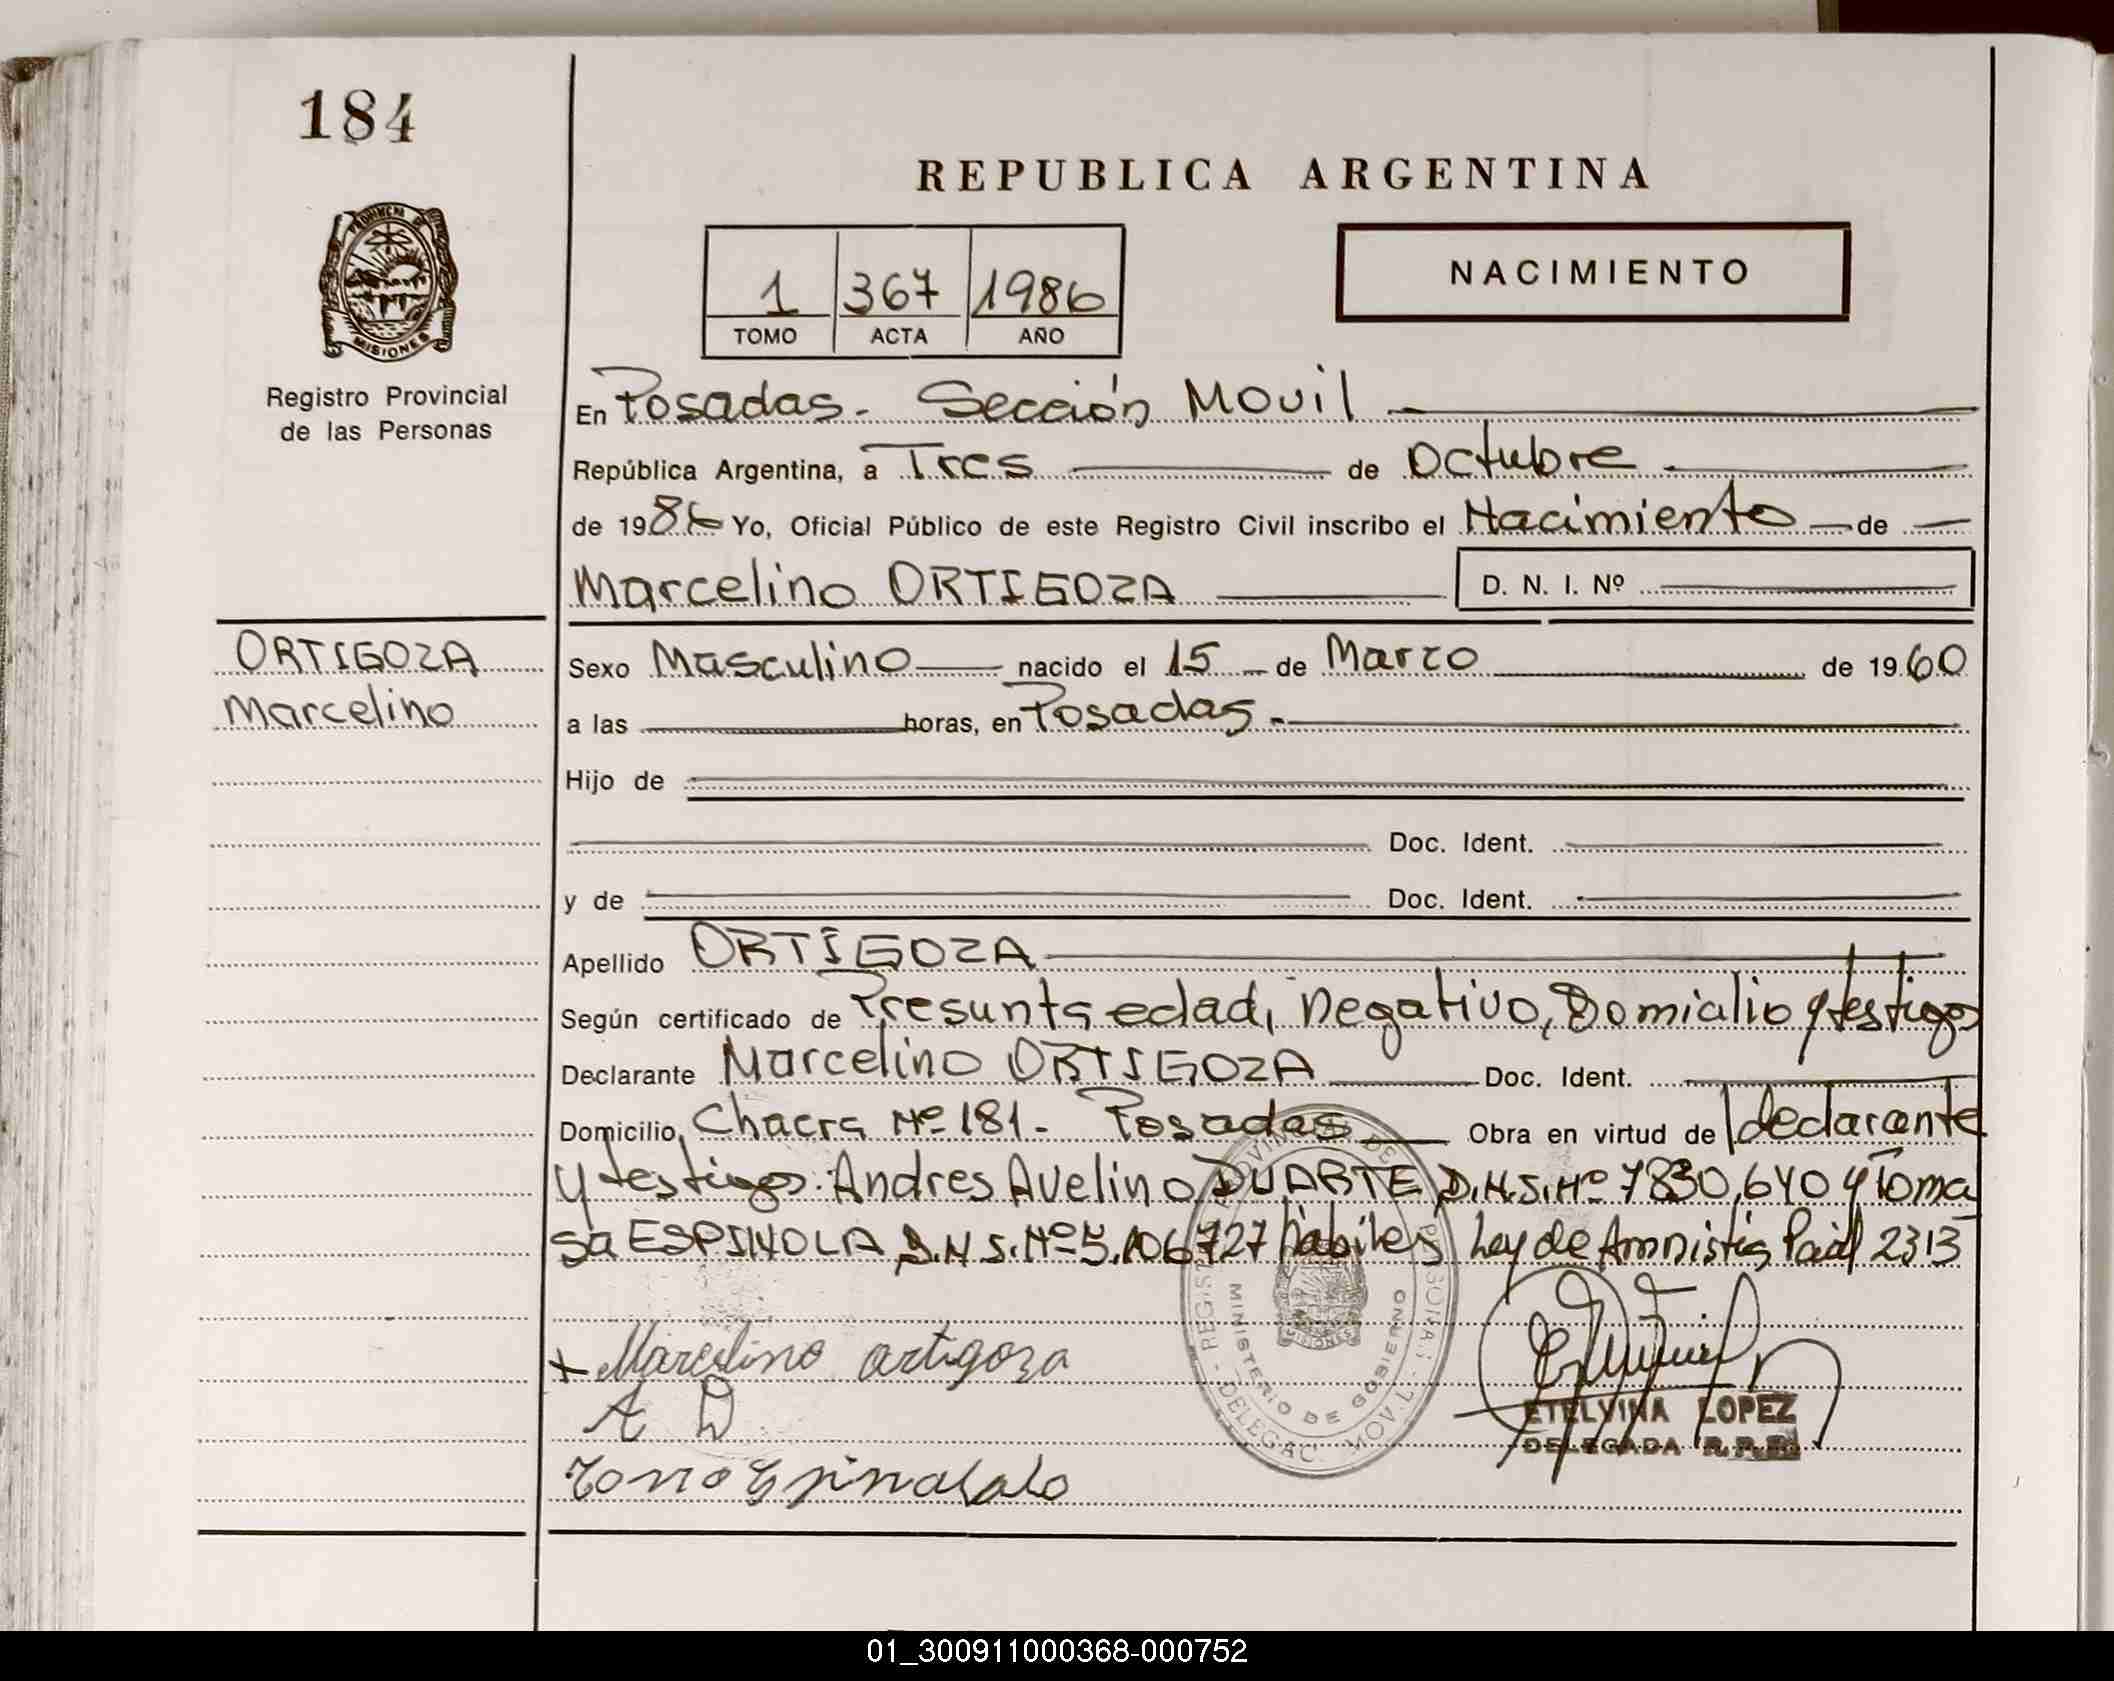 184
REPUBLICA ARGENTINA
PROVINCIA DE
MISIONES
Registro Provincial
de las Personas
1 367 1986
TOMO ACTA AÑO
NACIMIENTO
En Posadas. Sección Movil
República Argentina, a Tres de Octubre
de 1986 Yo, Oficial Público de este Registro Civil inscribo el Nacimiento de
Marcelino ORTIGOZA D. N. I. Nº
ORTIGOZA
Marcelino
Sexo Masculino nacido el 15 de Marzo de 1960
a las horas, en Posadas.
Hijo de
Doc. Ident.
y de Doc. Ident.
Apellido ORTIGOZA
Según certificado de Presunta edad, negativo, Domicilio y testigos
Declarante Marcelino ORTIGOZA Doc. Ident.
Domicilio, Chacra Nº 181. Posadas Obra en virtud de declarante
y testigos: Andres Avelino DUARTE D.N.I. Nº 7830,640 y Toma
sa ESPINOLA D.N.I. Nº 5.106727 habiles Ley de Amnistia 2313
Marcelino ortigoza
A D
MINISTERIO DE GOBIERNO
DELEGAC. MOVIL
ETELVINA LOPEZ
DELEGADA R.P.P.
01_300911000368-000752